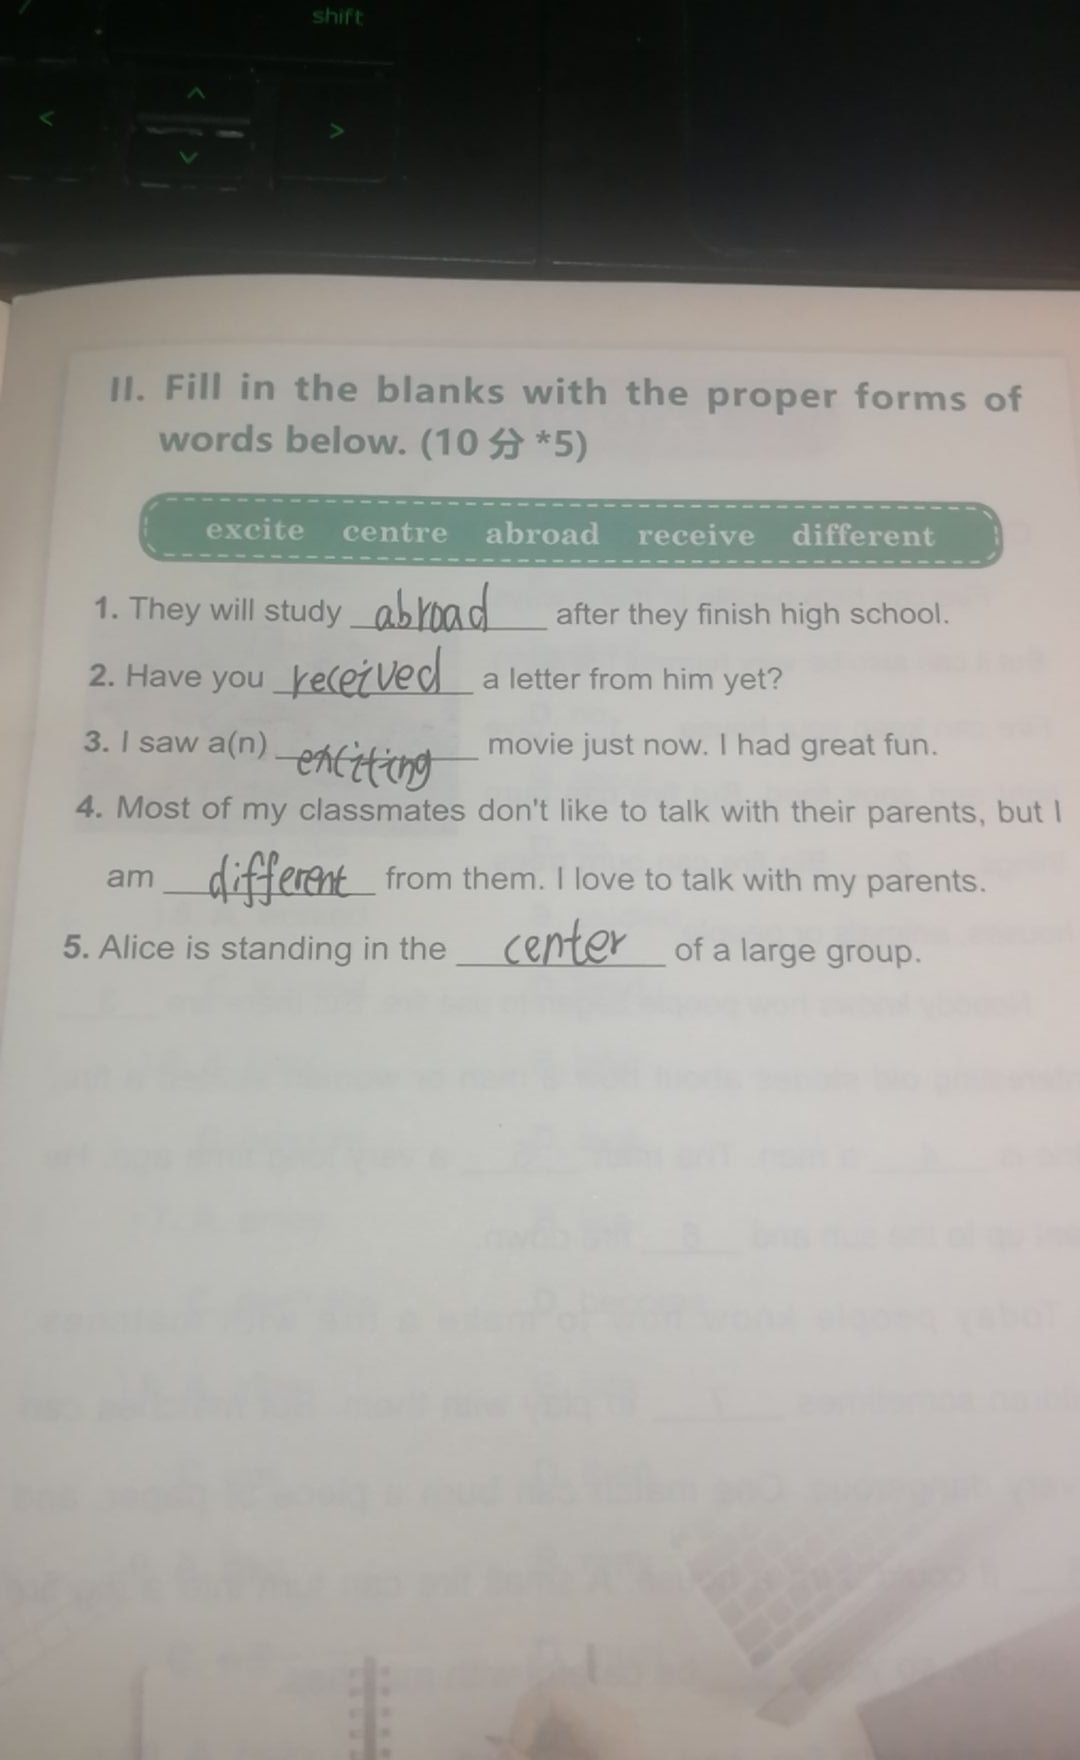 shift
<
^
>
v
II. Fill in the blanks with the proper forms of
words below. (10 分 *5)
excite centre abroad receive different
1. They will study abroad after they finish high school.
2. Have you received a letter from him yet?
3. I saw a(n) exciting movie just now. I had great fun.
4. Most of my classmates don't like to talk with their parents, but I
am different from them. I love to talk with my parents.
5. Alice is standing in the center of a large group.